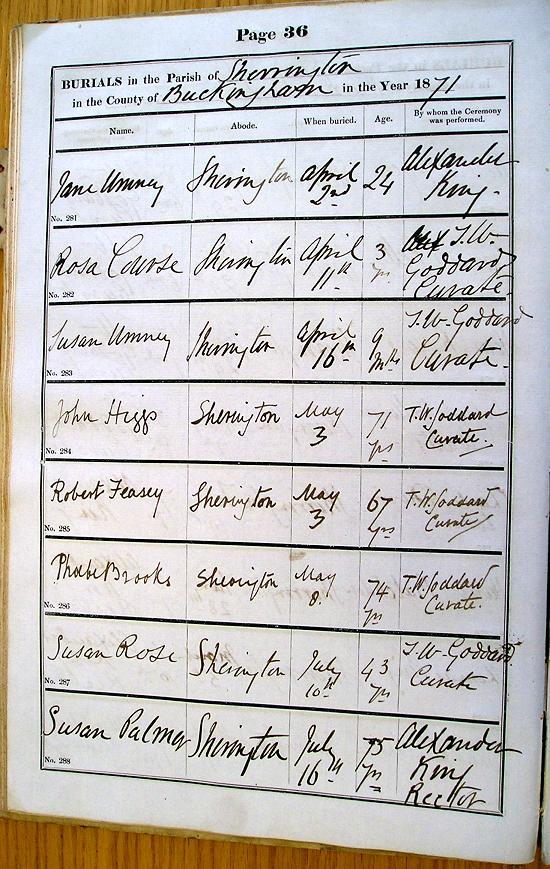 Page 36
BURIALS in the Parish of Sherrington
in the County of Buckingham in the Year 1871
Name. Abode. When buried. Age. By whom the Ceremony was performed.
Jane Umney Sherington April 2nd 24 Alexander King.
No. 281
Rosa Course Sherington April 11th 3 yrs Alex T.W. Goddard Curate
No. 282
Susan Umney Sherington April 16th 9 mths T.W. Goddard Curate.
No. 283
John Higgs Sherington May 3 71 yrs T.W. Goddard Curate.
No. 284
Robert Feasey Sherington May 3 67 yrs T.W. Goddard Curate
No. 285
Phœbe Brooks Sherington May 8. 74 yrs T.W. Goddard Curate.
No. 286
Susan Rose Sherington July 10th 43 yrs T.W. Goddard. Curate
No. 287
Susan Palmer Sherington July 16th 75 yrs Alexander King Rector
No. 288